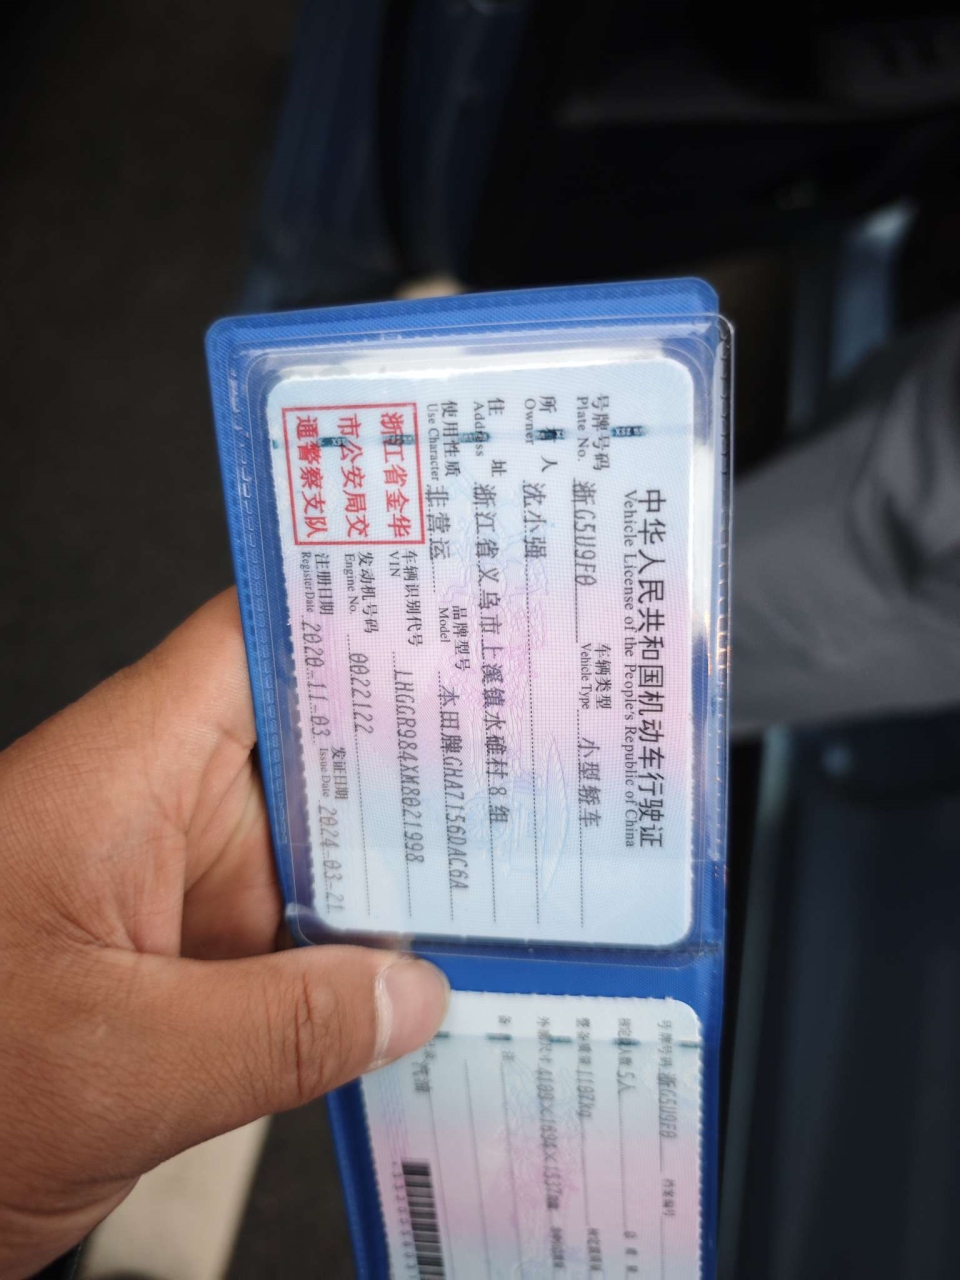 中华人民共和国机动车行驶证
Vehicle License of the People's Republic of China
号牌号码 浙G5U9F0 车辆类型 小型轿车
Plate No. Vehicle Type
所有人 沈小强
Owner
住址 浙江省义乌市上溪镇水碓村8组
Address
使用性质 非营运 品牌型号 本田牌GHA7156DAC6A
Use Character Model
浙江省金华
市公安局交
通警察支队
车辆识别代号 LHGGR984XM8021998
VIN
发动机号码 0022122
Engine No.
注册日期 2020-11-03 发证日期 2024-03-21
Register Date Issue Date
号牌号码 浙G5U9F0 档案编号
核定载人数 5人 总质量
整备质量 1107kg 核定载质量
外廓尺寸
备注
汽油